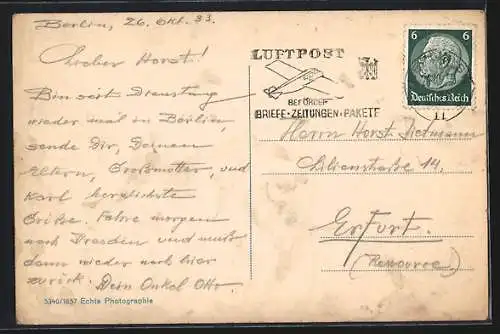 Berlin, 26. Okt. 33.
Lieber Horst!
Bin seit Dienstag
wieder mal in Berlin,
sende Dir, Deinen
Eltern, Großmutter, und
Karl herzlichste
Grüße. Fahre morgen
nach Dresden und muß
dann wieder nach hier
zurück. Dein Onkel Otto.
5340/1657 Echte Photographie
LUFTPOST
BEFÖRDERT
BRIEFE·ZEITUNGEN·PAKETE
6 6
Deutsches Reich
11
Herrn Horst Dietmann
Lilienstraße 14,
Erfurt.